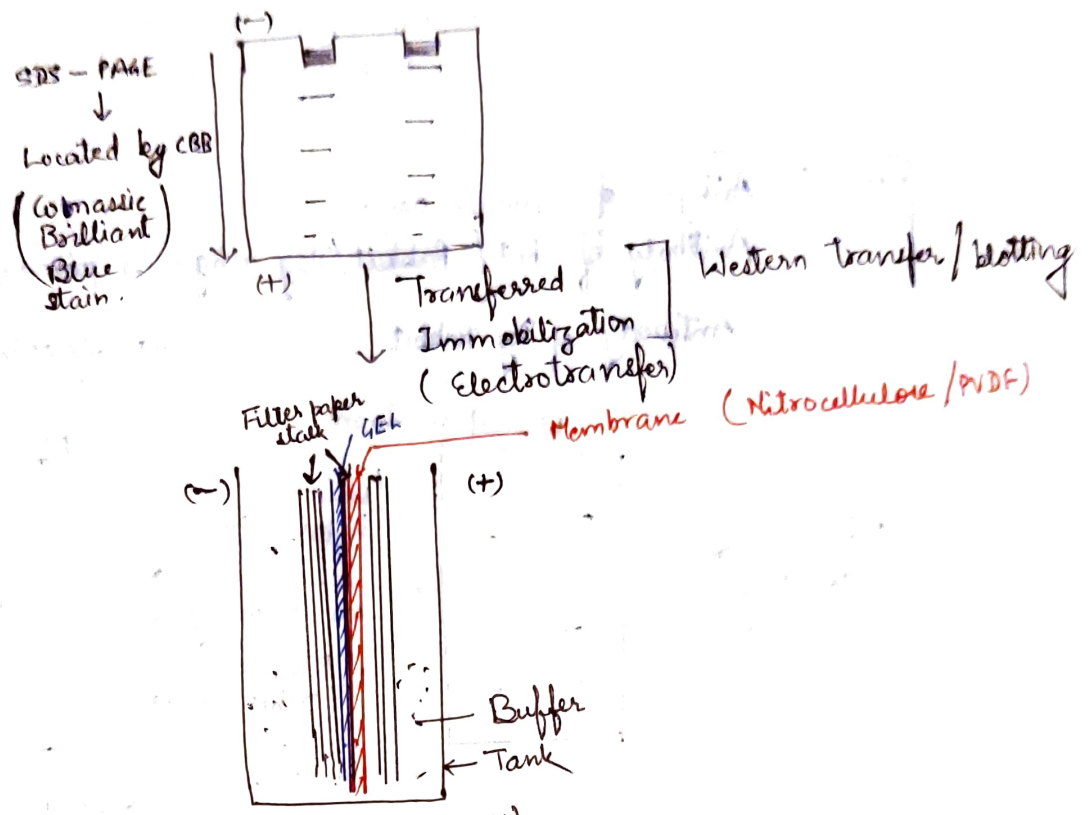 (-)
SDS - PAGE
↓
Located by CBB
(Comassic
Brilliant
Blue
stain.)
(+)
Transferred
Immobilization
(Electrotransfer)
Western transfer/blotting
Filter paper
stack
GEL
Membrane (Nitrocellulose/PVDF)
(-)
(+)
Buffer
Tank